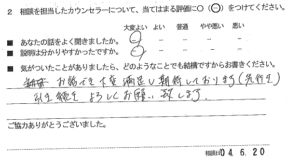 2 相談を担当したカウンセラーについて、当てはまる評価に○(○)をつけてください。
大変よい よい 普通 やや悪い 悪い
■ あなたの話をよく聞きましたか。 ○ － － － －
■ 説明は分かりやすかったですか。 ○ － － － －
■ 気がついたことがありましたら、どのようなことでも結構ですからお書きください。
大変満足し期待しております
引き続きよろしくお願い致します。
ご協力ありがとうございました。
相談日 04. 6. 20